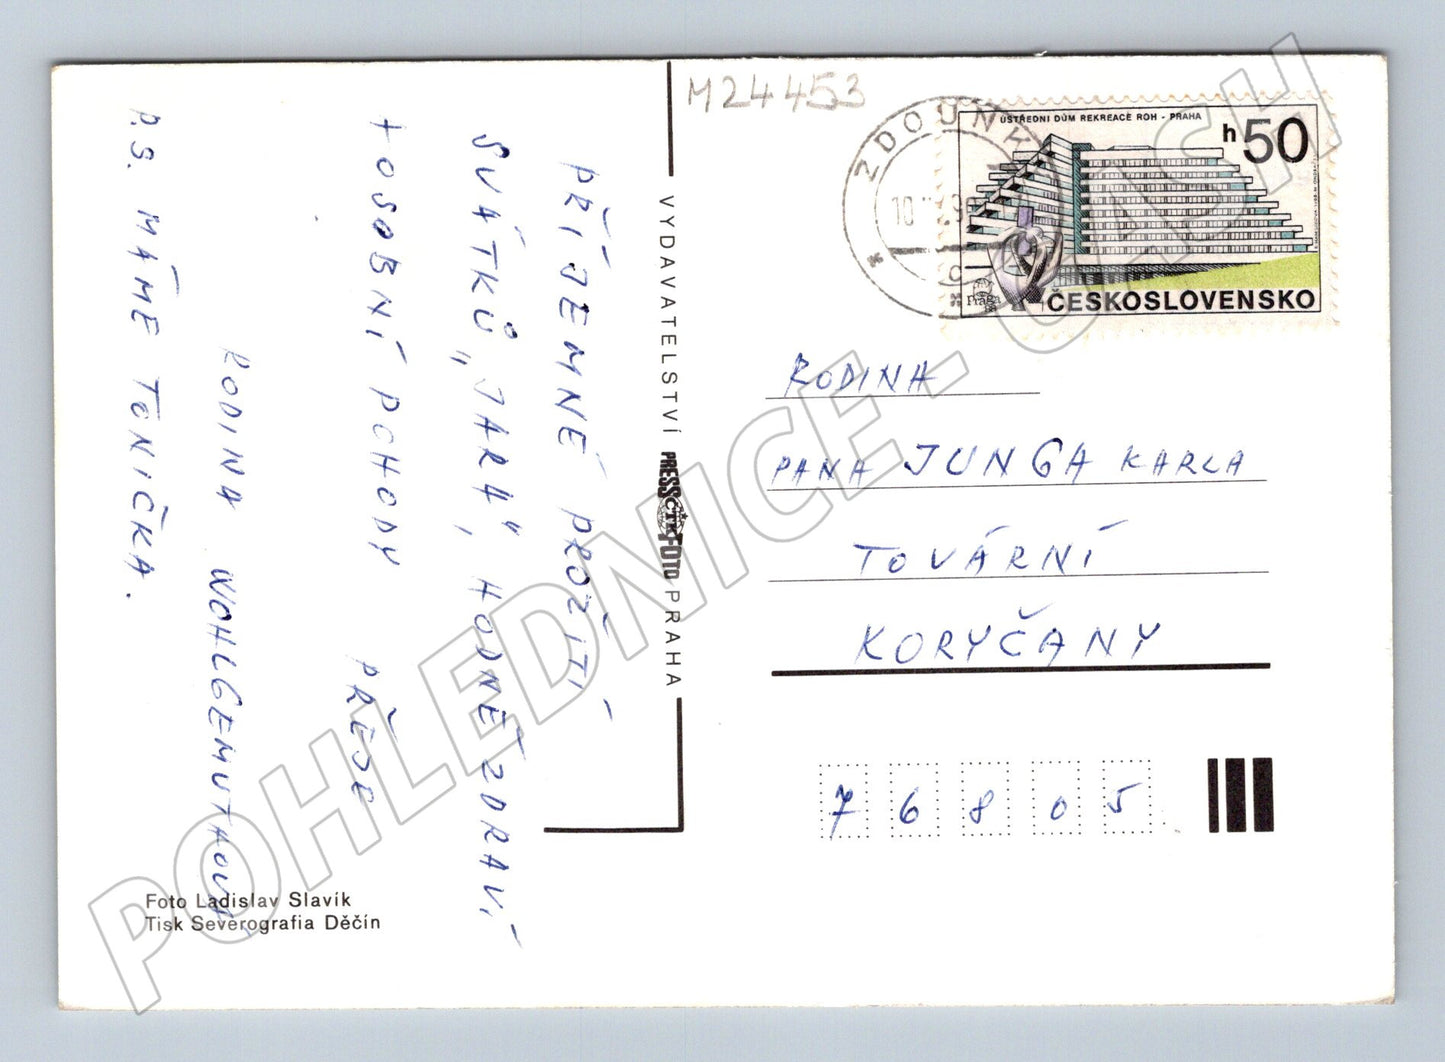 PŘÍJEMNÉ PROŽITÍ
SVÁTKŮ „JARA", HODNĚ ZDRAVÍ
+ OSOBNÍ POHODY PŘEJE
RODINA WOHLGEMUTHOVÁ
P.S. MÁME TONIČKA.
Foto Ladislav Slavík
Tisk Severografia Děčín
VYDAVATELSTVÍ PRESSFOTO PRAHA
ČTK
M24453
ZDOUNKY
ÚSTŘEDNÍ DŮM REKREACE ROH - PRAHA
h50
Praga
ČESKOSLOVENSKO
RODINA
PANA JUNGA KARLA
TOVÁRNÍ
KORYČANY
76805
POHLEDNICE - CASH